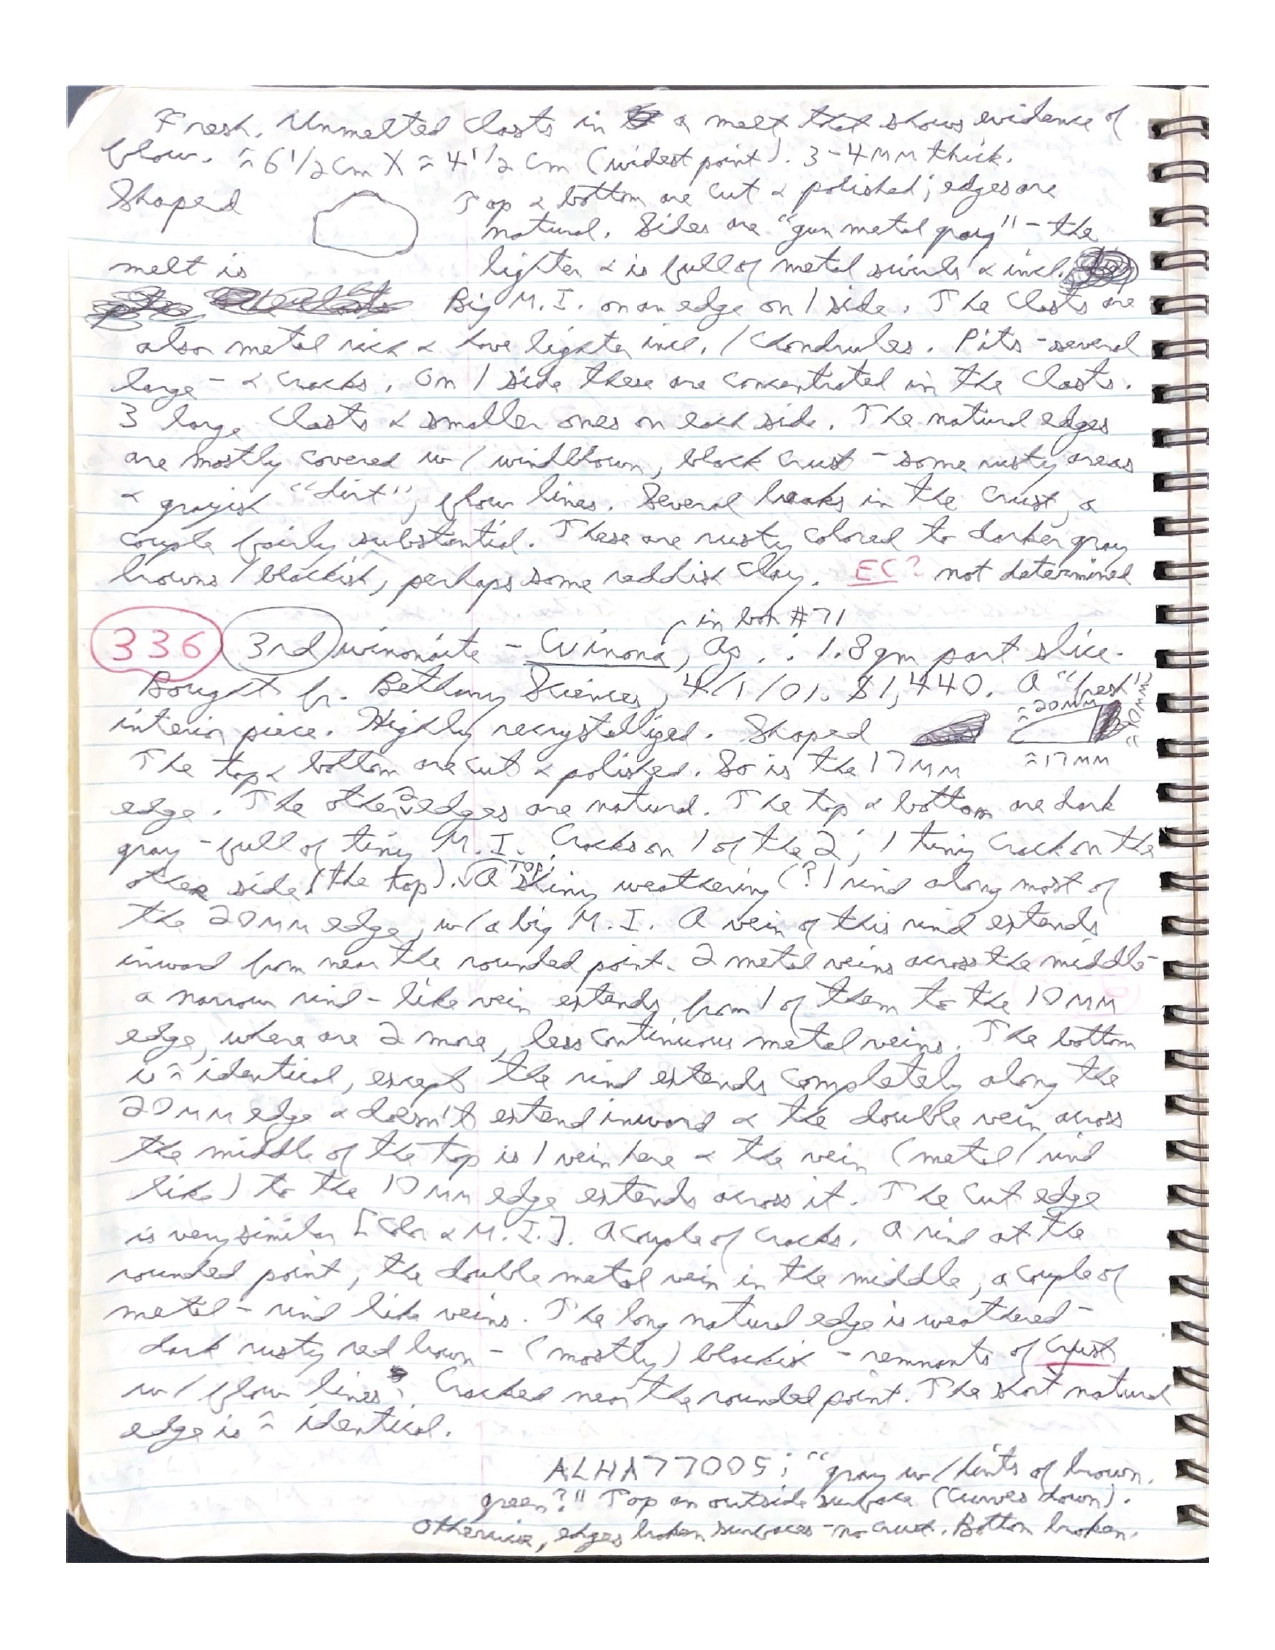 Fresh. Unmelted clasts in a melt that shows evidence of
flow. ≈ 6 1/2 cm X ≈ 4 1/2 cm (widest point). 3-4 MM thick.
Shaped Top & bottom are cut & polished; edges are
natural. Sides are "gun metal gray" - the
melt is lighter & is full of metal swirls & incl.
Big M.I. on an edge on 1 side. The clasts are
also metal rich & have lighter incl. / chondrules. Pits - several
large - & cracks. On 1 side these are concentrated in the clasts.
3 large clasts & smaller ones on each side. The natural edges
are mostly covered w/ windblown, black crust - some rusty areas
& grayish "dirt", flow lines. Several breaks in the crust, a
couple fairly substantial. These are rusty colored to darker gray
browns / blackish, perhaps some reddish clay. EC? not determined
in box #71
336 3rd winonaite - Winona, Az. : 1.8gm part slice.
Bought fr. Bethany Sciences, 4/1/01. $1,440. A "fresh"
interior piece. Highly recrystallized. Shaped ≈20MM ≈10MM
The top & bottom are cut & polished. So is the 17MM ≈17MM
edge. The other 2 edges are natural. The top & bottom are dark
gray - full of tiny M.I. Cracks on 1 of the 2; 1 tiny crack on the
other side (the top). Top: A shiny weathering (?) rind along most of
the 20MM edge, w/ a big M.I. A vein of this rind extends
inward from near the rounded point. 2 metal veins across the middle -
a narrow rind-like vein extends from 1 of them to the 10MM
edge, where are 2 more, less continuous metal veins. The bottom
is ≈ identical, except the rind extends completely along the
20MM edge & doesn't extend inward & the double vein across
the middle of the top is 1 vein here & the vein (metal/rind
like) to the 10MM edge extends across it. The cut edge
is very similar [color & M.I.]. A couple of cracks. A rind at the
rounded point, the double metal vein in the middle, a couple of
metal-rind like veins. The long natural edge is weathered -
dark rusty red brown - (mostly) blackish - remnants of crust
w/ flow lines? Cracked near the rounded point. The short natural
edge is ≈ identical.
ALHA77005: "gray w/ hints of brown.
green?" Top an outside surface (curves down).
Otherwise, edges broken surfaces - no crust. Bottom broken.